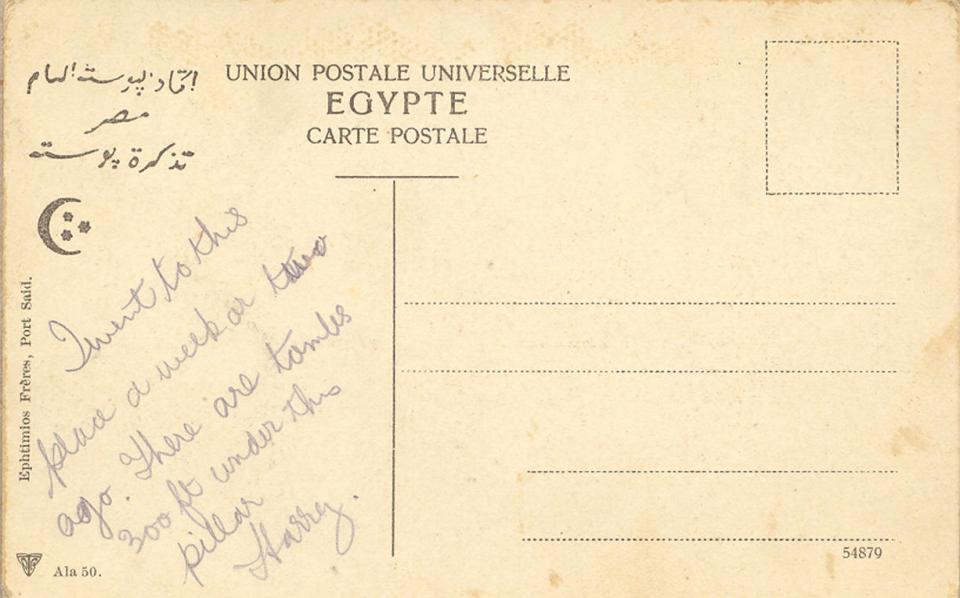 اتحاد پوستة العام
مصر
تذكرة پوستة
UNION POSTALE UNIVERSELLE
EGYPTE
CARTE POSTALE
I went to this
place a week or two
ago. There are tombs
300 ft under this
pillar
Harrey.
Ephtimios Frères, Port Said.
Ala 50.
54879